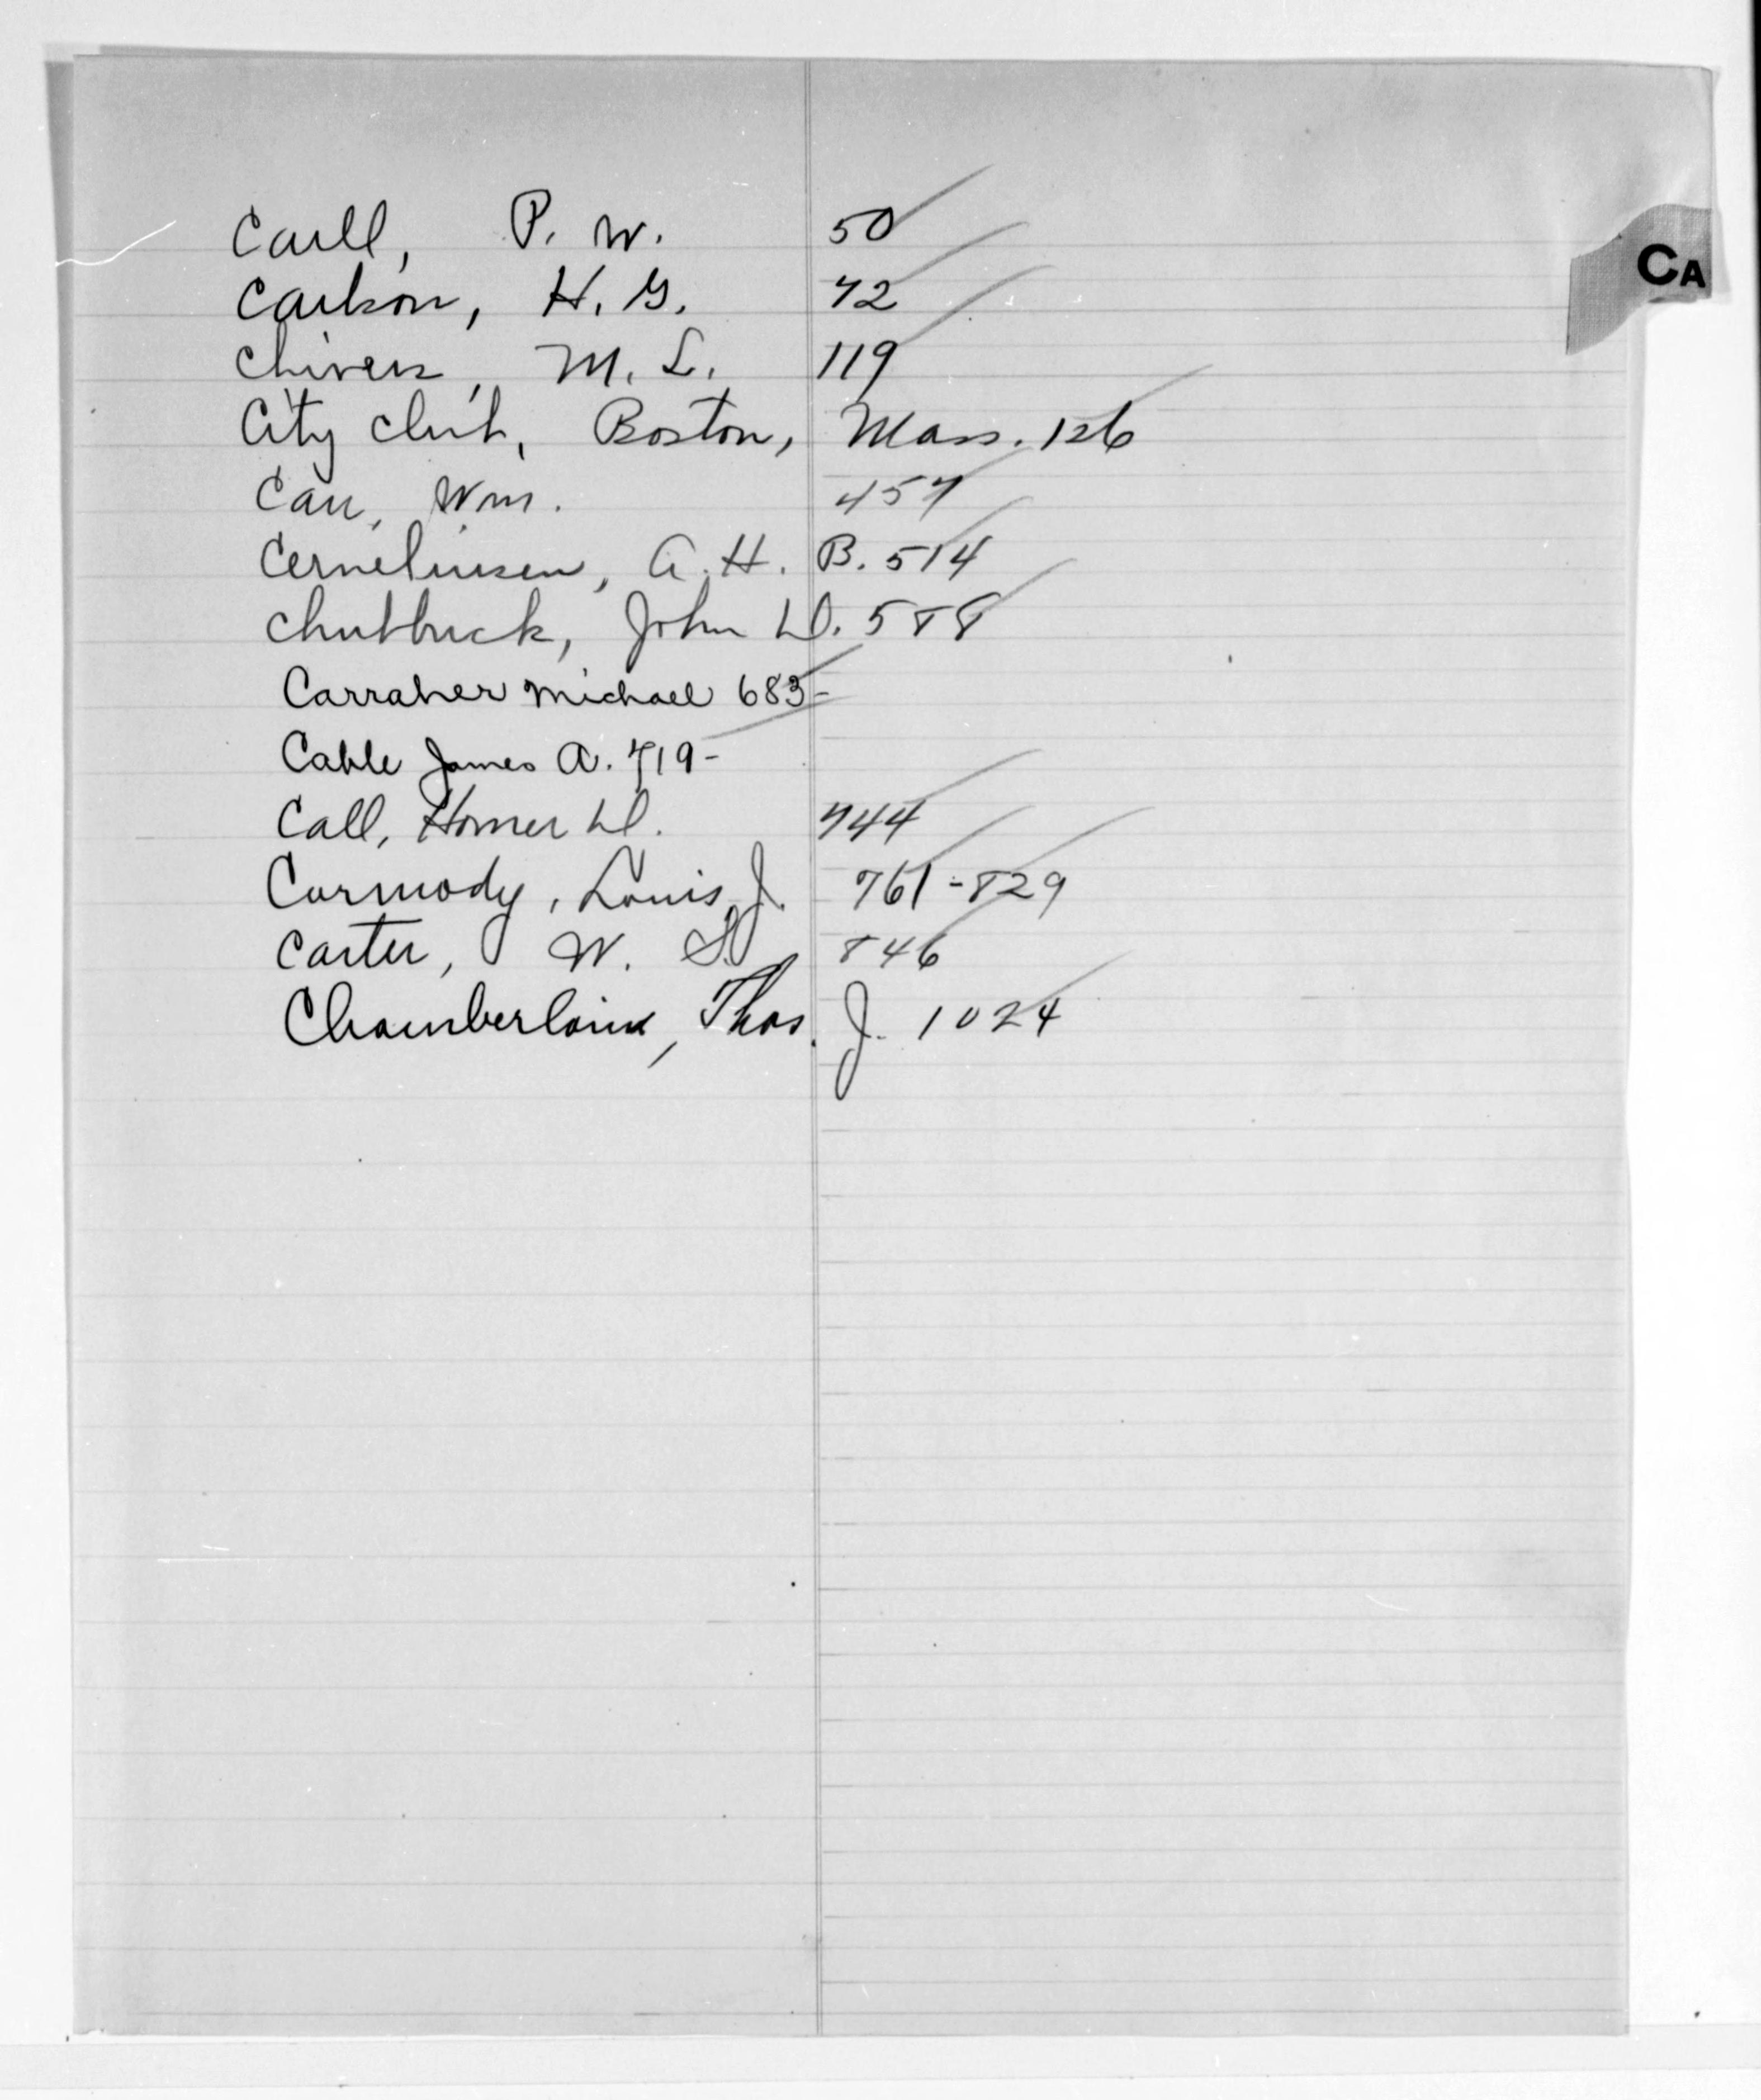 CA
Carll, P. W. 50
Carlson, H. G. 72
Chivers, M. L. 119
City Club, Boston, Mass. 126
Carr, Wm. 457
Cerneliusen, A. H. B. 514
Chubbuck, John D. 588
Carraher Michael 683-
Cable James A. 719-
Call, Homer D. 744
Carmody, Louis J. 761-829
Carter, W. S. 846
Chamberlain, Thos. J. 1024